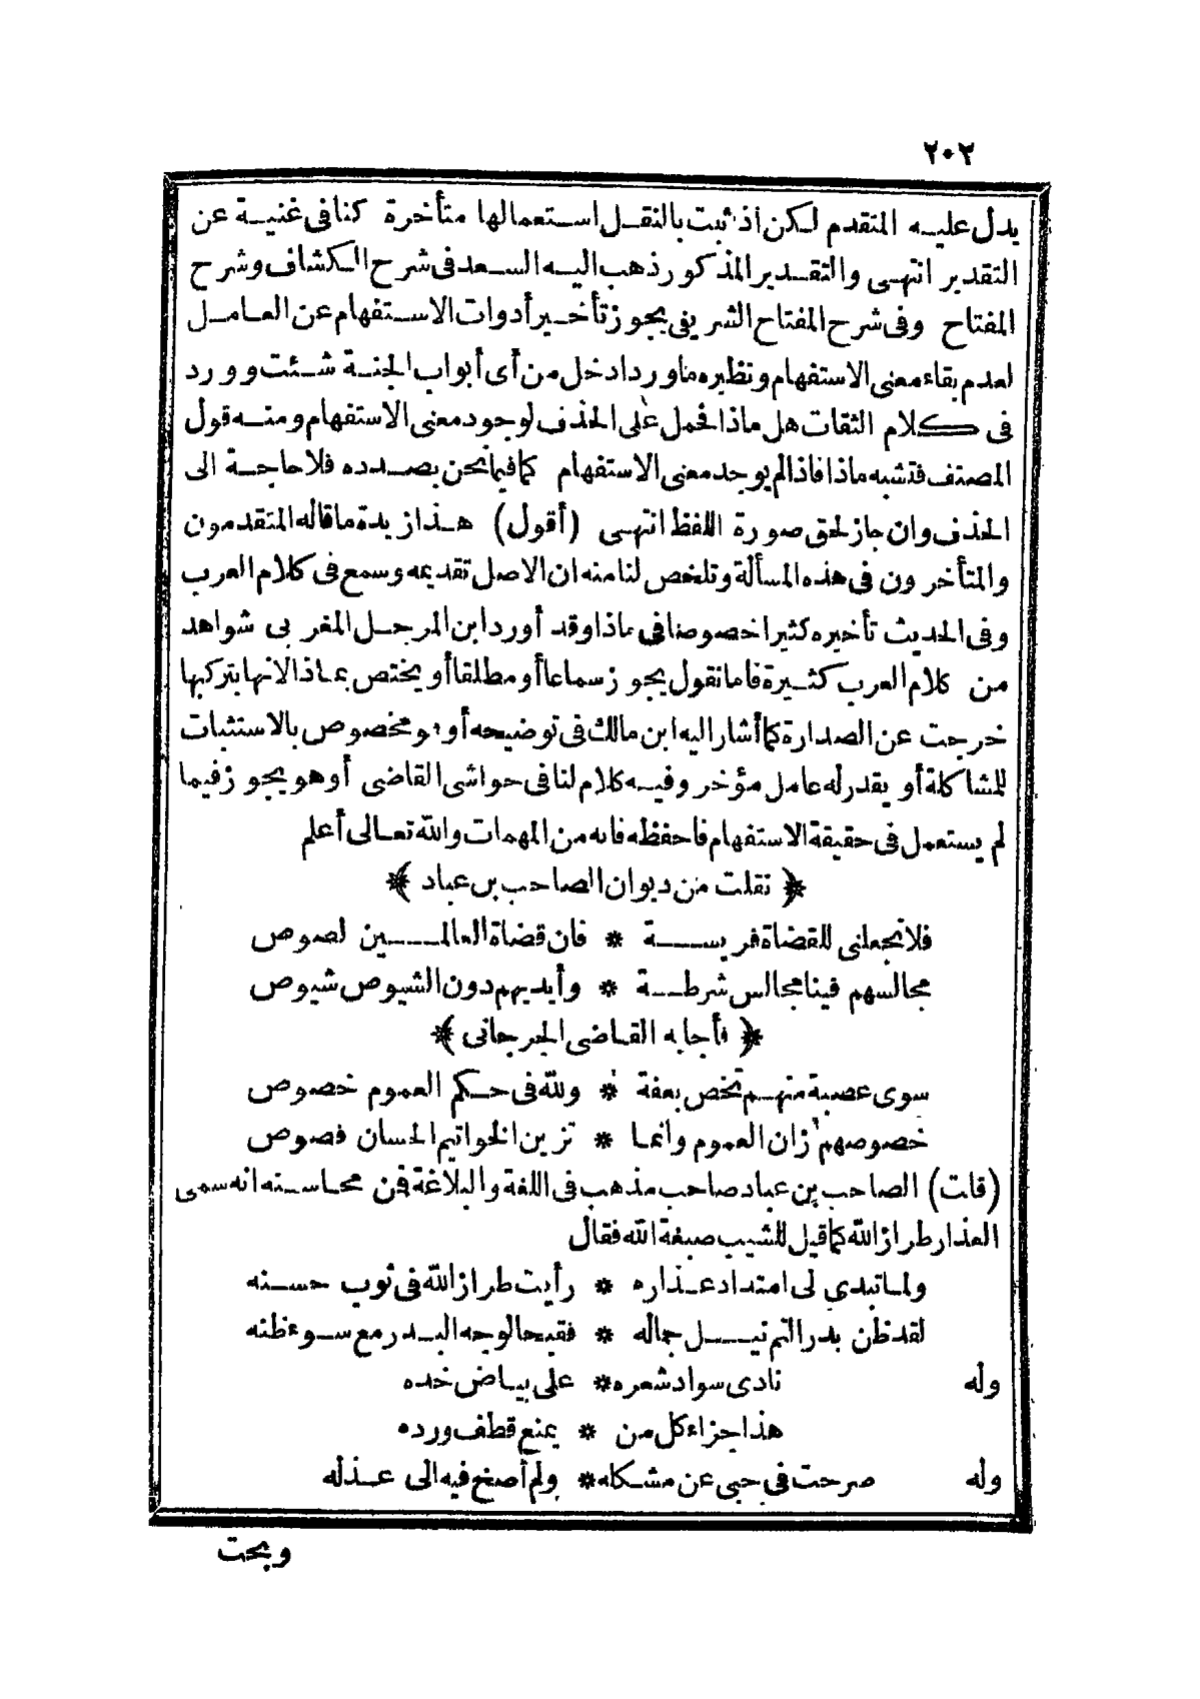 ٢٠٢
يدل عليه المتقدم لكن اذ ثبت بالنقل استعمالها متأخرة كنا فى غنية عن
التقدير انتهى والتقدير المذكور ذهب اليه السعد فى شرح الكشاف وشرح
المفتاح وفى شرح المفتاح الشريفى يجوز تأخير أدوات الاستفهام عن العامل
لعدم بقاء معنى الاستفهام ونظيره ما ورد ادخل من أى أبواب الجنة شئت وورد
فى كلام الثقات هل ماذا فحمل على الحذف لوجود معنى الاستفهام ومنه قول
المصنف فتشبه ماذا فاذا لم يوجد معنى الاستفهام كما فيما نحن بصدده فلا حاجة الى
الحذف وان جاز لحق صورة اللفظ انتهى (أقول) هذا زبدة ما قاله المتقدمون
والمتأخرون فى هذه المسألة وتلخص لنا منه ان الاصل تقديمه وسمع فى كلام العرب
وفى الحديث تأخيره كثيرا خصوصا فى ماذا وقد أورد ابن المرحل المغربى شواهد
من كلام العرب كثيرة فاما نقول يجوز سماعا أو مطلقا أو يختص بماذا لانها بتركبها
خرجت عن الصدارة كما أشار اليه ابن مالك فى توضيحه أو هو مخصوص بالاستثبات
للمشاكلة أو يقدر له عامل مؤخر وفيه كلام لنا فى حواشى القاضى أو هو يجوز فيما
لم يستعمل فى حقيقة الاستفهام فاحفظه فانه من المهمات والله تعالى أعلم
﴿ نقلت من ديوان الصاحب بن عباد ﴾
فلا تجعلنى للقضاة فريسة * فان قضاة العالمين لصوص
مجالسهم فينا مجالس شرطة * وأيديهم دون الشيوص شيوص
﴿ فأجابه القاضى الجرجانى ﴾
سوى عصبة منهم تخص بعفة * ولله فى حكم العموم خصوص
خصوصهم زان العموم وانما * تزين الخواتيم الحسان فصوص
(قلت) الصاحب بن عباد صاحب مذهب فى اللغة والبلاغة فمن محاسنه انه سمى
العذار طراز الله كما قيل للشيب صبغة الله فقال
ولما تبدى لى امتداد عذاره * رأيت طراز الله فى ثوب حسنه
لقد ظن بدر التم نيل جماله * فقبحا لوجه البدر مع سوء ظنه
وله نادى سواد شعره * على بياض خده
هذا جزاء كل من * يمنع قطف ورده
وله صرحت فى حبى عن مشكله * ولم أصغ فيه الى عذله
وبحت